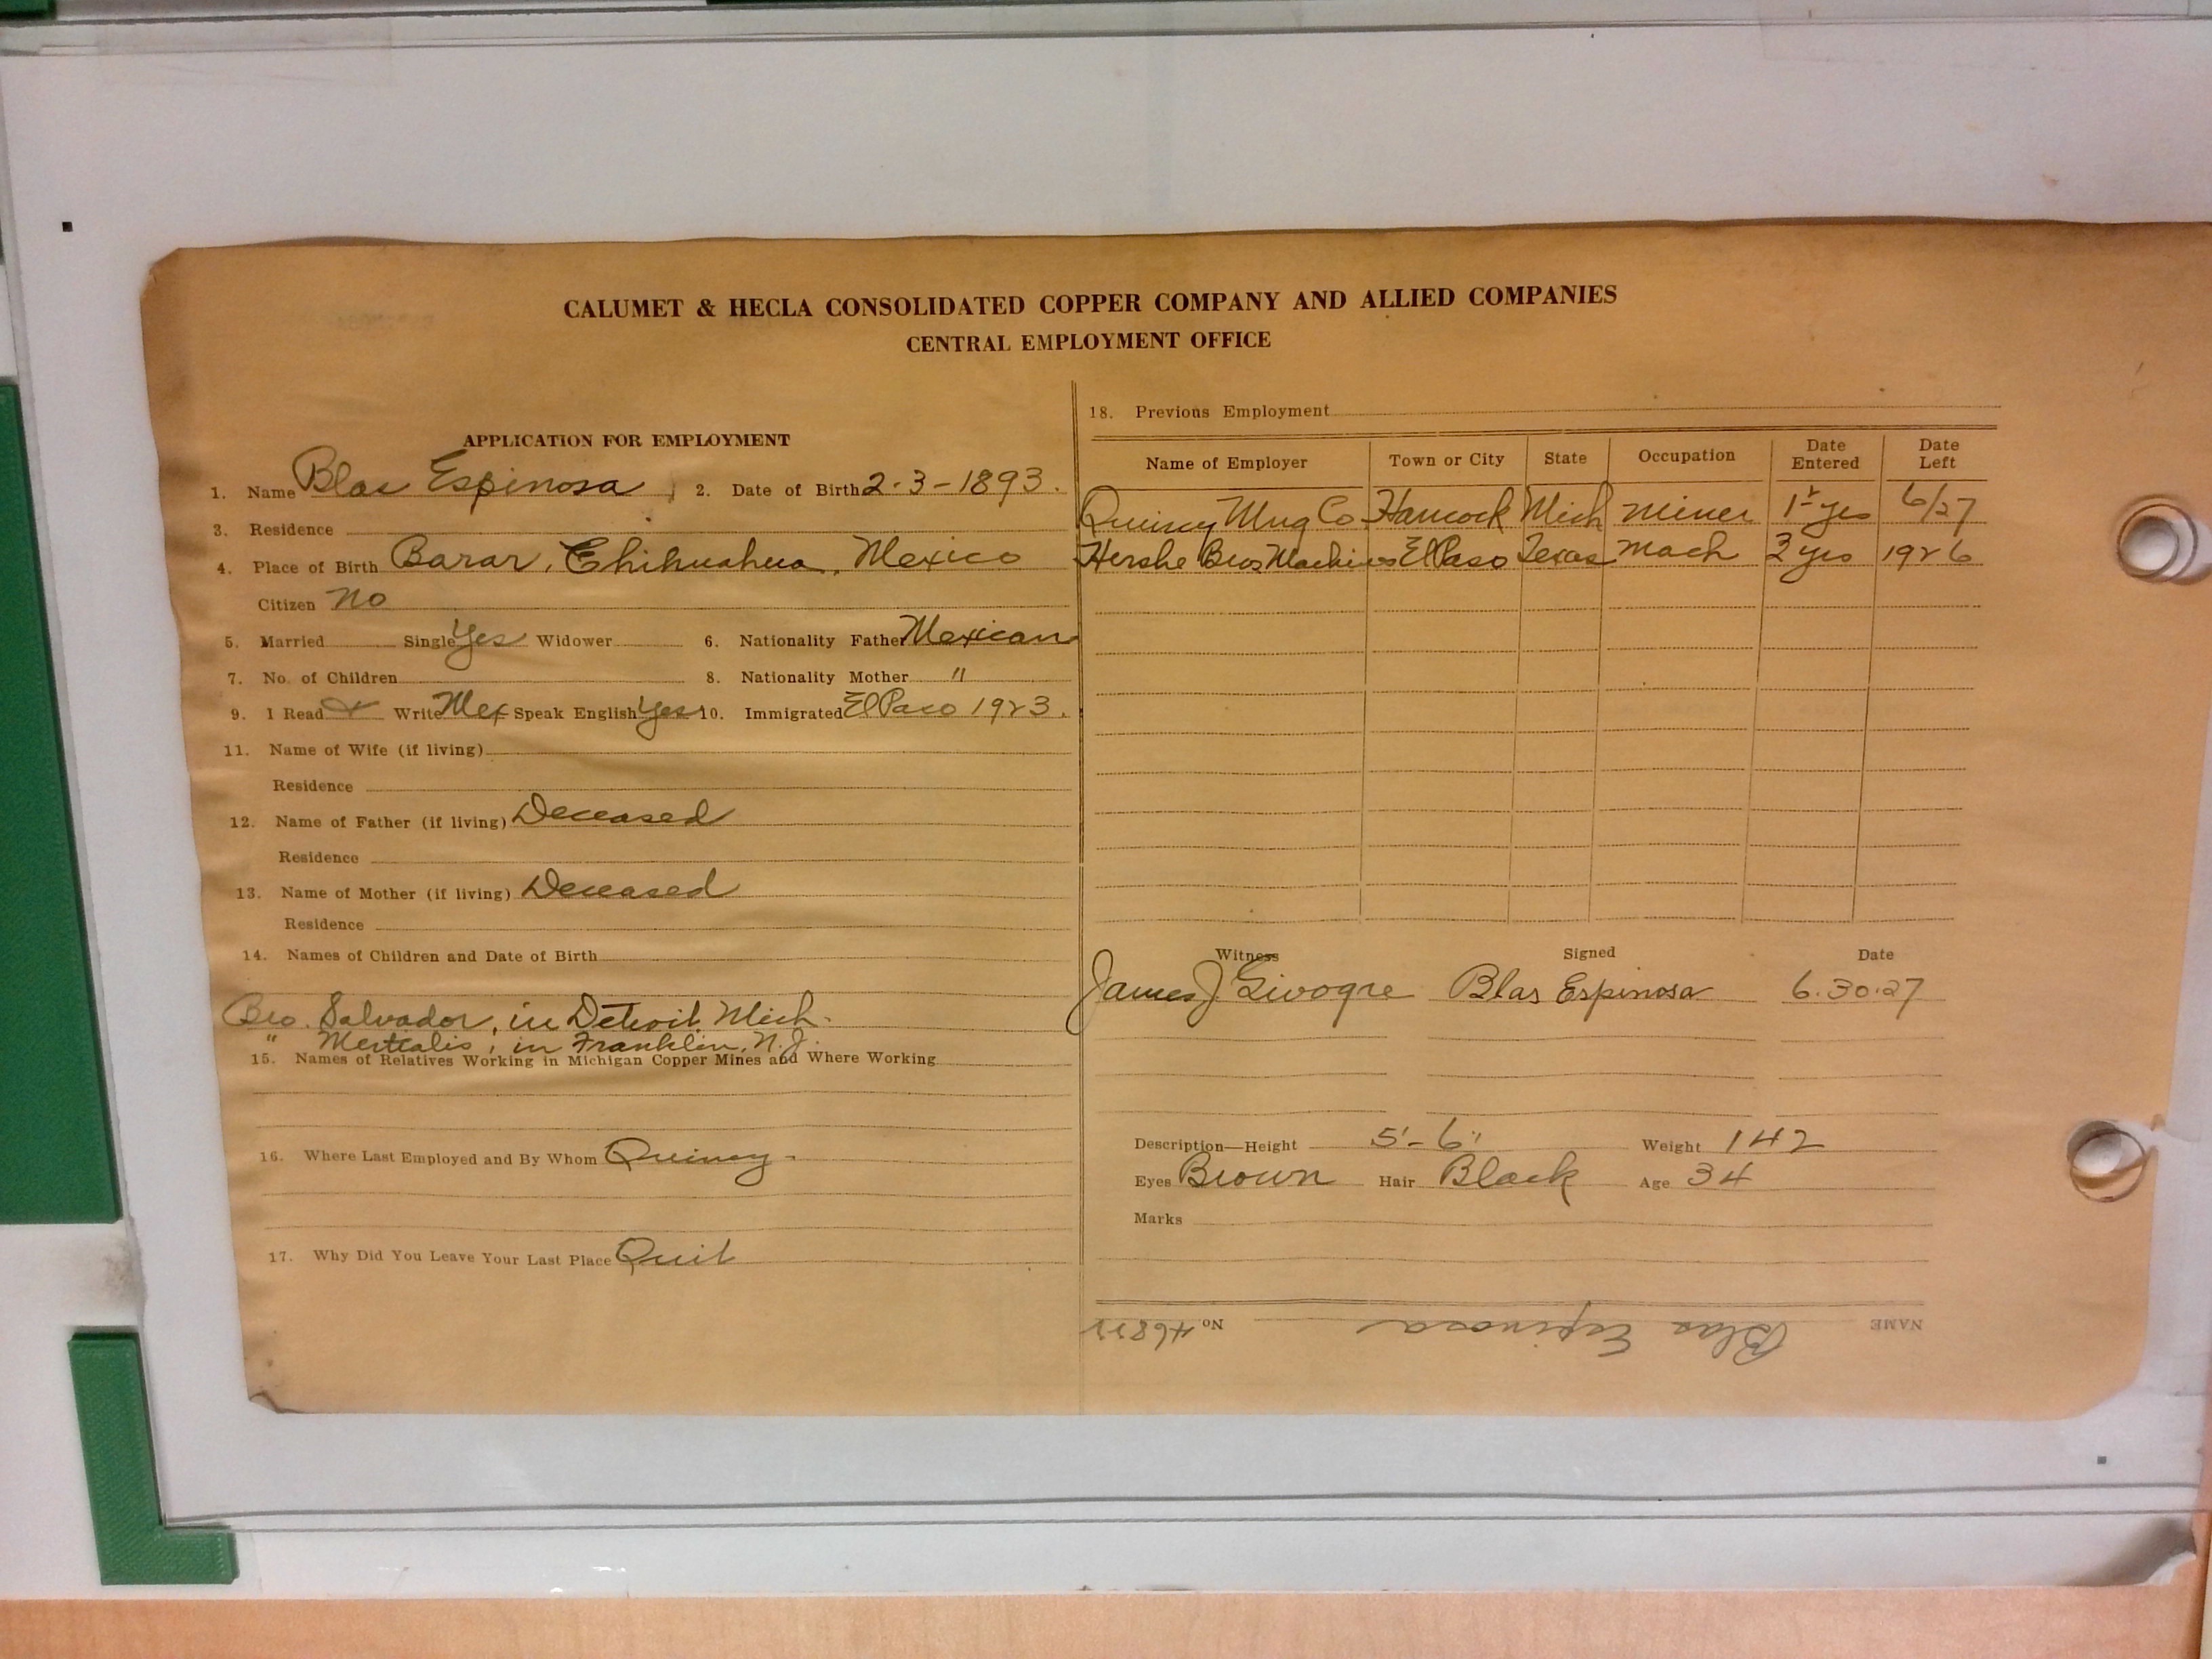 CALUMET & HECLA CONSOLIDATED COPPER COMPANY AND ALLIED COMPANIES
CENTRAL EMPLOYMENT OFFICE
APPLICATION FOR EMPLOYMENT
1. Name Blas Espinosa 2. Date of Birth 2-3-1893.
3. Residence
4. Place of Birth Barar, Chihuahua, Mexico
Citizen no
5. Married Single Yes Widower 6. Nationality Father Mexican
7. No. of Children 8. Nationality Mother "
9. I Read & Write Mex Speak English Yes 10. Immigrated El Paso 1923.
11. Name of Wife (if living)
Residence
12. Name of Father (if living) Deceased
Residence
13. Name of Mother (if living) Deceased
Residence
14. Names of Children and Date of Birth
Bro. Salvador, in Detroit Mich.
" in Franklin, N.J.
15. Names of Relatives Working in Michigan Copper Mines and Where Working
16. Where Last Employed and By Whom Quincy -
17. Why Did You Leave Your Last Place Quit
18. Previous Employment
Name of Employer Town or City State Occupation Date Entered Date Left
Quincy Mng Co Hancock Mich miner 1 yes 6/27
Hershe Bros El Paso Texas Mach 2 yrs 1926
Witness Signed Date
James J. Blas Espinosa 6.30.27
Description—Height 5'-6" Weight 142
Eyes Brown Hair Black Age 34
Marks
NAME Blas Espinosa No. 46822